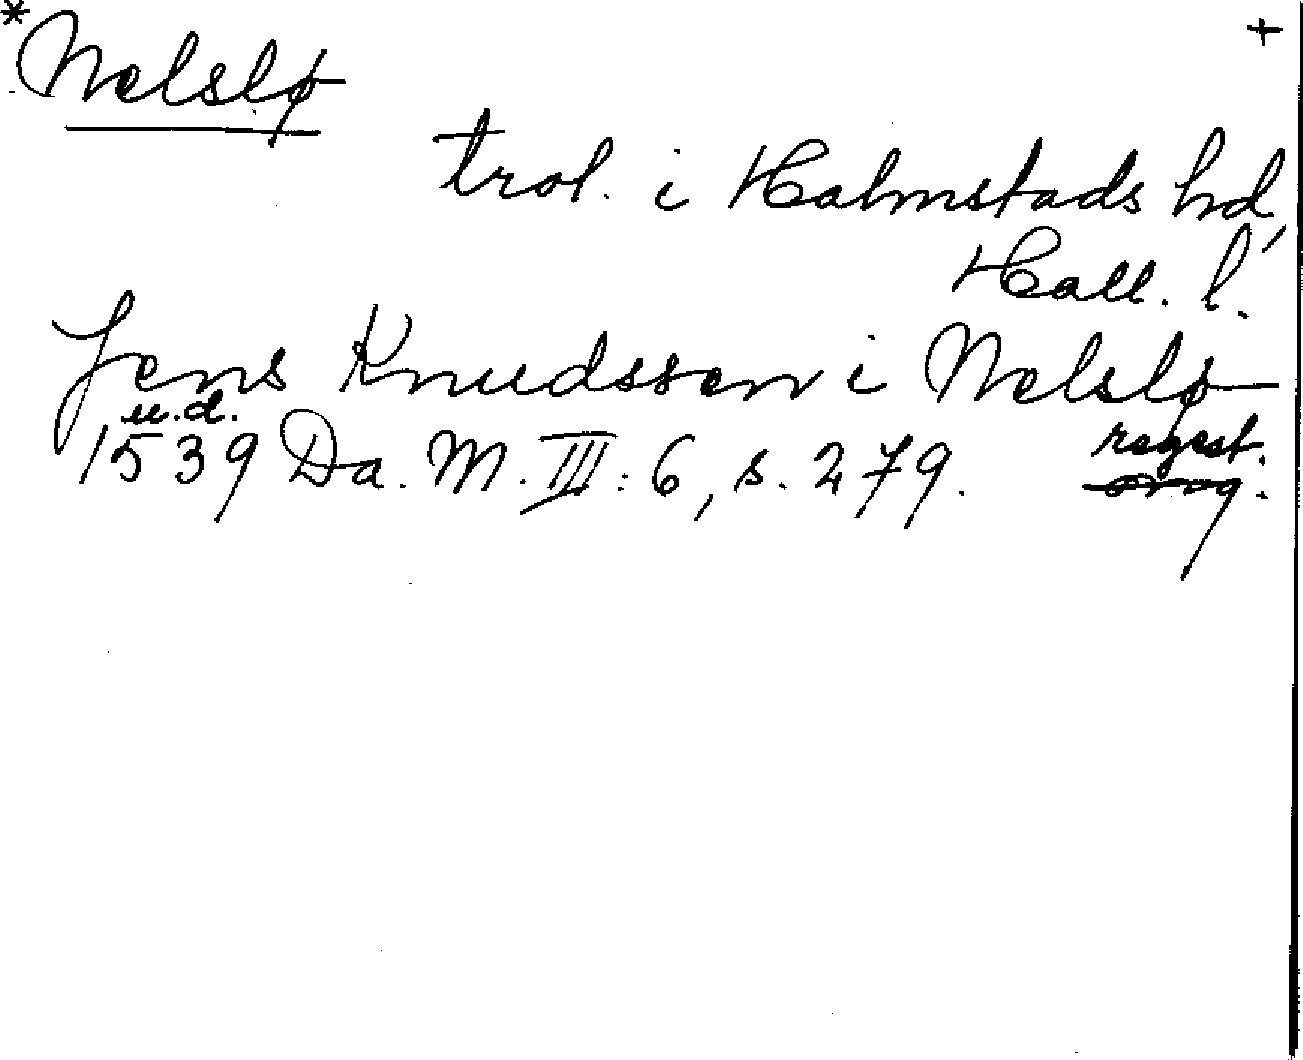 *Nelslø +
trol. i Halmstads hd,
Hall. l.
Jens Knudssen i Nelslø
u.d. regest.
1539 Da. M. III: 6, s. 279. orig.